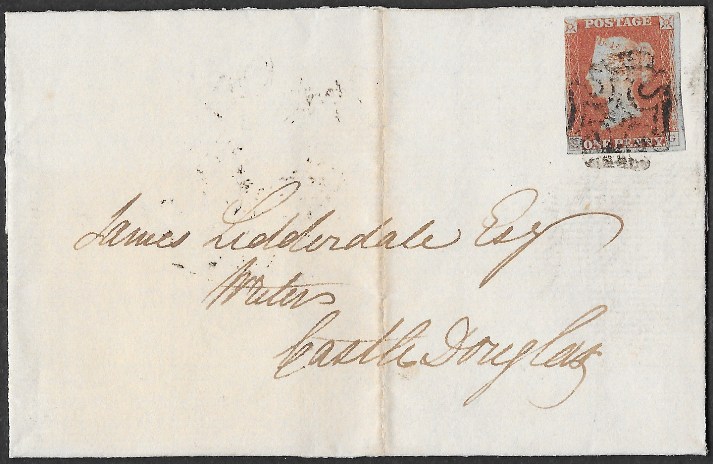 POSTAGE
ONE PENNY.
James Lidderdale Esq
Writers
Castle Douglas